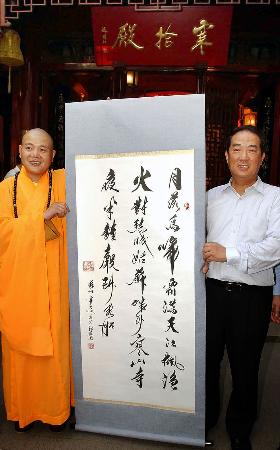 寒拾殿
月落烏啼霜滿天江楓漁
火對愁眠姑蘇城外寒山寺
夜半鐘聲到客船